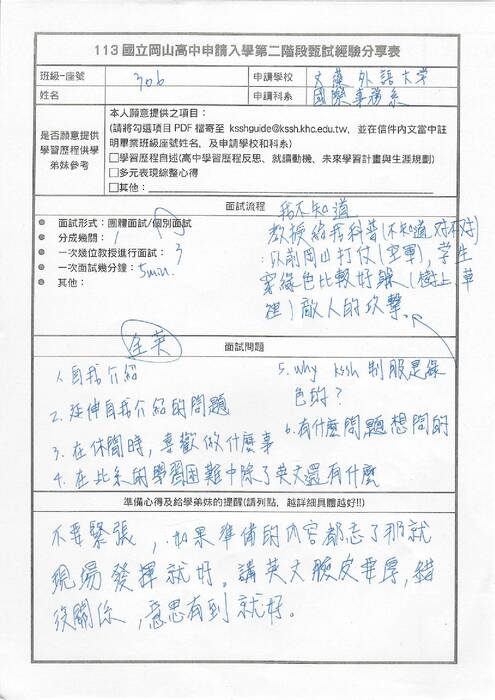 113 國立岡山高中申請入學第二階段甄試經驗分享表
班級-座號 306 申請學校 文藻外語大學
姓名 申請科系 國際事務系
是否願意提供學習歷程供學弟妹參考
本人願意提供之項目：
(請將勾選項目 PDF 檔寄至 ksshguide@kssh.khc.edu.tw，並在信件內文當中註
明畢業班級座號姓名, 及申請學校和科系)
□學習歷程自述(高中學習歷程反思、就讀動機、未來學習計畫與生涯規劃)
□多元表現綜整心得
□其他：
面試流程
● 面試形式：團體面試/個別面試
● 分成幾關：1
● 一次幾位教授進行面試：3
● 一次面試幾分鐘：5min.
● 其他：
我不知道
教授給我科普(不知道對不對)
:以前岡山打仗(空軍)，學生
穿綠色比較好躲(樹上、草
裡)敵人的攻擊
全英
面試問題
1.自我介紹
2.延伸自我介紹的問題
3.在休閒時，喜歡做什麼事
4.在此系的學習困難中除了英文還有什麼
5.why kssh 制服是綠
色的？
6.有什麼問題想問的
準備心得及給學弟妹的提醒(請列點，越詳細具體越好!!)
不要緊張，如果準備的內容都忘了那就
現場發揮就好。講英文臉皮要厚，錯
沒關係，意思有到就好。